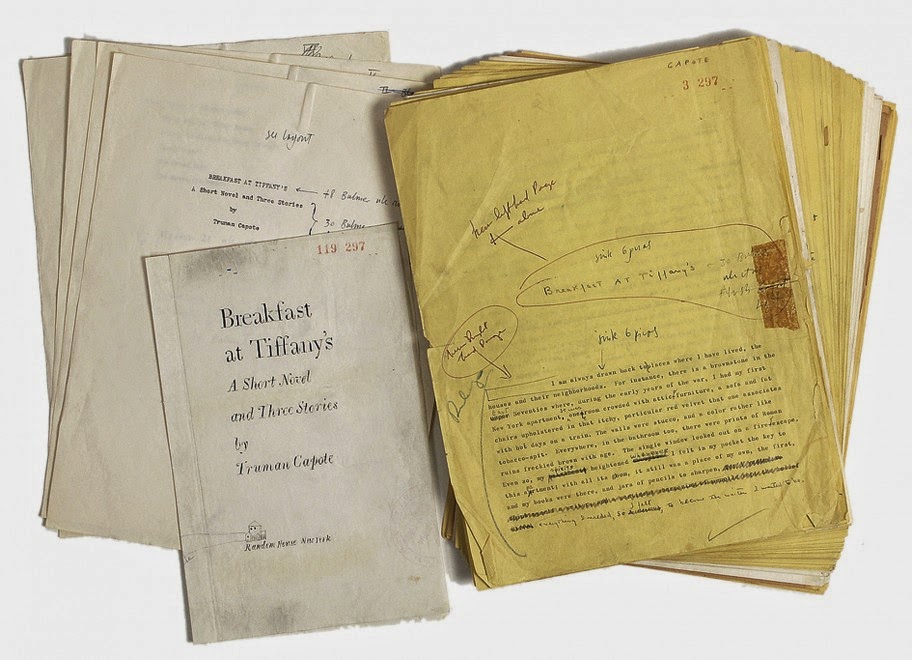 see layout
BREAKFAST AT TIFFANY'S ← 48 Bulmer
A Short Novel and Three Stories
by
Truman Capote
30 Bulmer
119 297
Breakfast
at Tiffany's
A Short Novel
and Three Stories
by
Truman Capote
Random House New York
CAPOTE
3 297
new left hand Page
alone
sink 6 picas
Breakfast AT Tiffany's
new Right
hand Page
sink 6 picas
I am always drawn back to places where I have lived, the
houses and their neighborhoods. For instance, there is a brownstone in the
East Seventies where, during the early years of the war, I had my first
New York apartment. one room crowded with attic furniture, a sofa and fat
chairs upholstered in that itchy, particular red velvet that one associates
with hot days on a train. The walls were stucco, and a color rather like
tobacco-spit. Everywhere, in the bathroom too, there were prints of Roman
ruins freckled brown with age. The single window looked out on a fire escape.
Even so, my spirits heightened whenever I felt in my pocket the key to
this apartment; with all its gloom, it still was a place of my own, the first,
and my books were there, and jars of pencils to sharpen,
everything I needed, so I felt, to become the writer I wanted to be.